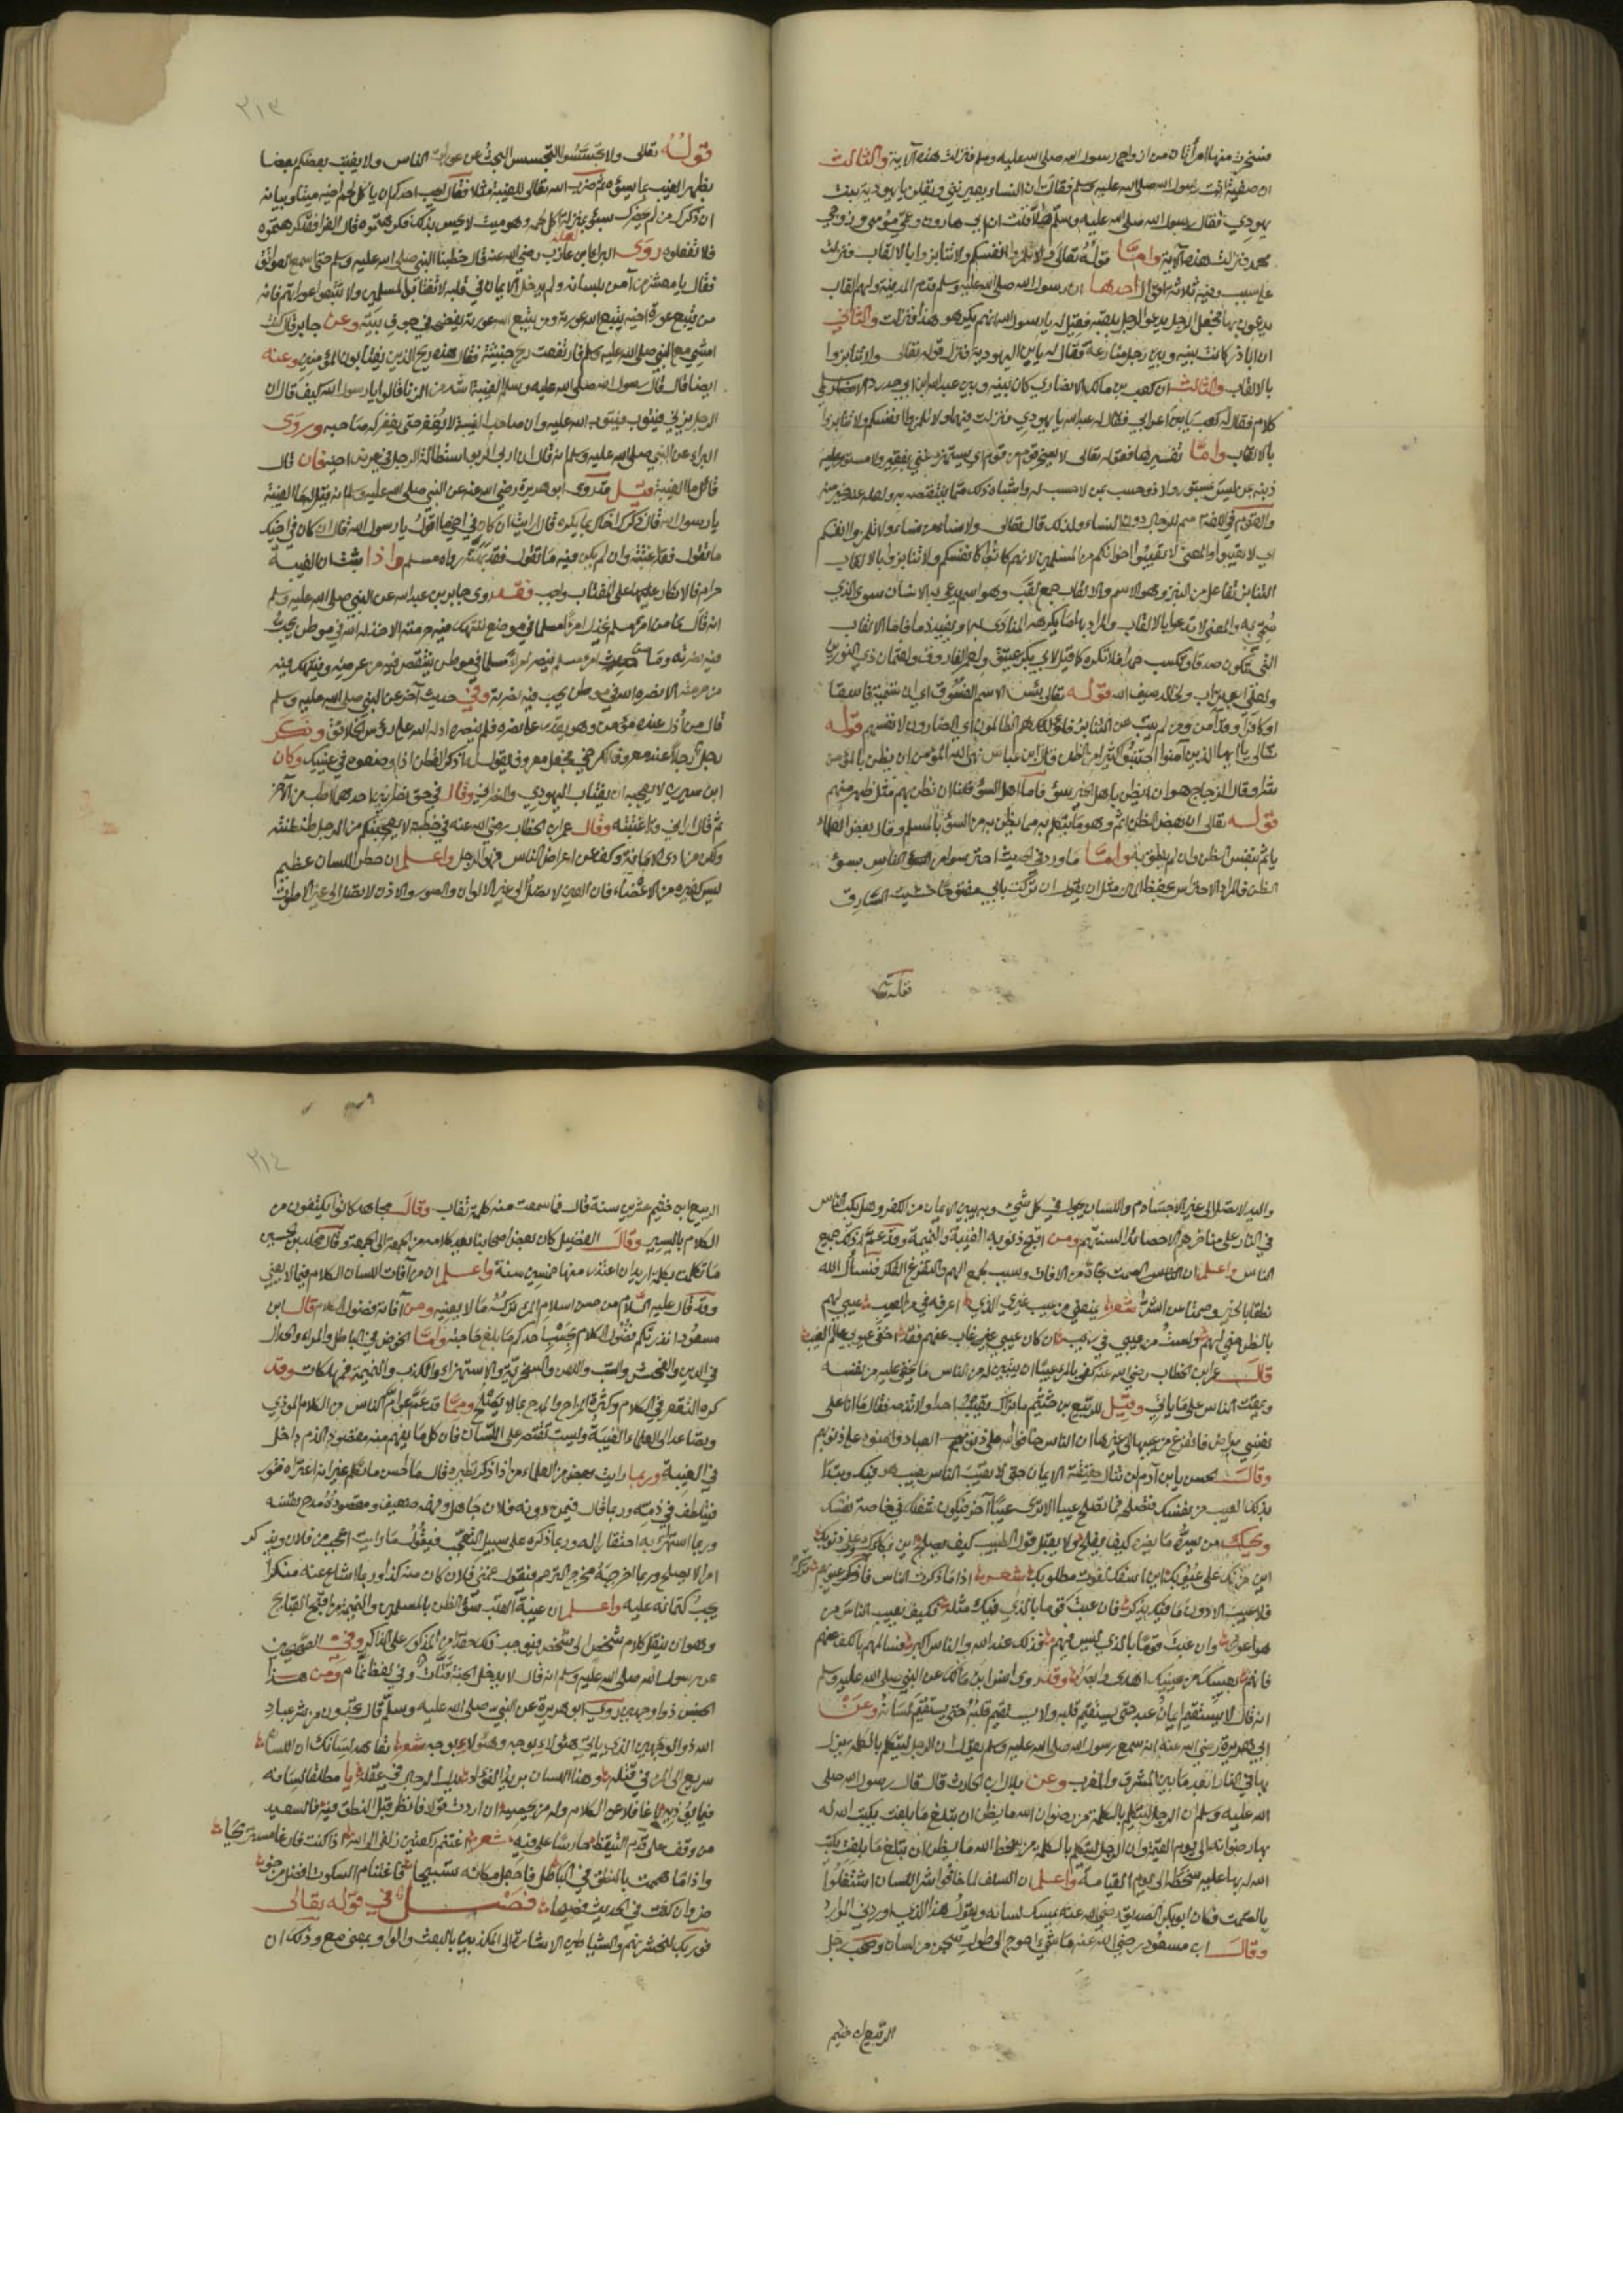 فسخرت منها امرأتان من ازواج رسول الله صلى الله عليه وسلم فنزلت هذه الآية والثالث
ان صفية اتت رسول الله صلى الله عليه وسلم فقالت ان النساء يعيرنني ويقلن يا يهودية بنت
يهودي فقال رسول الله صلى الله عليه وسلم هلا قلت ان ابي هارون وعمي موسى وزوجي
محمد فنزلت هذه الآية واما قوله تعالى ولا تلمزوا انفسكم ولا تنابزوا بالالقاب فنزلت
على سبب وفيه ثلاثة اقوال احدها ان رسول الله صلى الله عليه وسلم قدم المدينة ولهم القاب
يدعون بها فجعل الرجل يدعو الرجل بلقبه فقيل له يا رسول الله انهم يكرهون هذا فنزلت والثاني
ان ابا ذر كانت بينه وبين رجل منازعة فقال له يا ابن اليهودية فنزل قوله تعالى ولا تنابزوا
بالالقاب والثالث ان كعب بن مالك الانصاري كان بينه وبين عبد الله بن ابي حدرد الاسلمي
كلام فقال له كعب يا اعرابي فقال له عبد الله يا يهودي فنزلت فيهما ولا تلمزوا انفسكم ولا تنابزوا
بالالقاب واما تفسيرها فقوله تعالى لا يسخر قوم من قوم اي لا يستهزئ غني بفقير ولا مستور عليه
ذنبه بمن ليس بمستور ولا ذو حسب بمن لا حسب له واشباه ذلك مما يتنقصه به ولعله عند الله خير منه
والقوم في اللغة اسم للرجال دون النساء ولذلك قال تعالى ولا نساء من نساء ولا تلمزوا انفسكم
اي لا تعيبوا والمعنى لا تعيبوا اخوانكم من المسلمين لانهم كانوا كانفسكم ولا تنابزوا بالالقاب
التنابز تفاعل من النبز وهو الاسم والالقاب جمع لقب وهو اسم يدعى به الانسان سوى الذي
سمي به والمعنى لا تداعوا بالالقاب والمراد بها ما يكرهه المنادى بها ويفيد ذما فاما الالقاب
التي تكون صدقا وتكسب حمدا فلا تكره كما قيل لابي بكر عتيق ولعمر الفاروق ولعثمان ذي النورين
ولعلي ابو تراب ولخالد سيف الله قوله تعالى بئس الاسم الفسوق اي ان تسمية فاسقا
او كافرا وقد آمن ومن لم يتب عن التنابز فاولئك هم الظالمون اي الضارون لانفسهم قوله
تعالى يا ايها الذين آمنوا اجتنبوا كثيرا من الظن قال ابن عباس نهى الله المؤمن ان يظن بالمؤمن
شرا وقال الزجاج هو ان يظن باهل الخير سوء فاما اهل السوء فلنا ان نظن بهم مثل ظهر منهم
قوله تعالى ان بعض الظن اثم وهو ما يتكلم به مما يظن به من السوء بالمسلم وقال بعض العلماء
يأثم بنفس الظن وان لم ينطق به واما ما ورد في الحديث احترسوا من الناس بسوء
الظن فالمراد الاحتراس بحفظ المال مثل ان يقول ان تركت بابي مفتوحا خشيت السارق
قوله تعالى
٢١٣
قوله تعالى ولا تجسسوا التجسس البحث عن عورات الناس ولا يغتب بعضكم بعضا
بظهر الغيب بما يسوءه ثم ضرب الله تعالى للغيبة مثلا فقال ايحب احدكم ان يأكل لحم اخيه ميتا وبيانه
ان ذكرك من لم يحضرك بسوء بمنزلة اكل لحمه وهو ميت لا يحس بذلك فكرهتموه قال الفرا فقد كرهتموه
فلا تفعلوه روى البراء بن عازب رضي الله عنه قال خطبنا النبي صلى الله عليه وسلم حتى اسمع العواتق
فقال يا معشر من آمن بلسانه ولم يدخل الايمان في قلبه لا تغتابوا المسلمين ولا تتبعوا عوراتهم فانه
من يتبع عورة اخيه يتبع الله عورته ومن يتبع الله عورته يفضحه في جوف بيته وعن جابر قال كنت
امشي مع النبي صلى الله عليه وسلم فارتفعت ريح خبيثة فقال هذه ريح الذين يغتابون المؤمنين وعنه
ايضا قال قال رسول الله صلى الله عليه وسلم الغيبة اشد من الزنا قالوا يا رسول الله كيف قال ان
الرجل يزني فيتوب فيتوب الله عليه وان صاحب الغيبة لا يغفر حتى يغفر له صاحبه وروى
البراء عن النبي صلى الله عليه وسلم انه قال ان اربى الربا استطالة الرجل في عرض اخيه فان قال
قائل ما الغيبة قيل قد روى ابو هريرة رضي الله عنه عن النبي صلى الله عليه وسلم انه قيل له ما الغيبة
يا رسول الله قال ذكرك اخاك بما يكره قال ارايت ان كان في اخي ما اقول يا رسول الله قال ان كان في اخيك
ما تقول فقد اغتبته وان لم يكن فيه ما تقول فقد بهته رواه مسلم واذا ثبت ان الغيبة
حرام فالانكار عليها على المغتاب واجب فقد روى جابر بن عبد الله عن النبي صلى الله عليه وسلم
انه قال ما من امرئ مسلم يخذل امرأ مسلما في موضع تنتهك فيه حرمته الا خذله الله في موطن يحب
فيه نصرته وما من امرئ مسلم ينصر امرأ مسلما في موطن ينتقص فيه من عرضه وينتهك فيه
من حرمته الا نصره الله في موطن يحب فيه نصرته وفي حديث آخر عن النبي صلى الله عليه وسلم
قال من اذل عنده مؤمن وهو يقدر على نصره فلم ينصره اذله الله على رؤس الخلائق وذكر
رجل رجلا عند معروف الكرخي في محفل معروف يقول له اذكر القطن اذا وضعوه في عينيك وكان
ابن سيرين لا يعجبه ان يغتاب اليهودي والنصراني وقال في حق نصرانيين احدهما اطب من الآخر
ثم قال اراني قد اغتبته وقال عمر بن الخطاب رضي الله عنه في خطبة لا يعجبنكم من الرجل طنطنته
ولكن من ادى الامانة وكف عن اعراض الناس فهو الرجل واعلم ان خطر اللسان عظيم
ليس كغيره من الاعضاء فان العين لا تصل الى غير الالوان والصور والاذن لا تصل الى غير الاصوات
واليد لا تصل الى غير الاجسام واللسان يجول في كل شيء وبه يبين الايمان من الكفر وهل يكب الناس
في النار على مناخرهم الا حصائد السنتهم ومن اقبح ذنوبه الغيبة والنميمة وقد عم ذلك جميع
الناس واعلم ان الصمت نجاة من الافات وسبب لجمع الهم والتفرغ للفكر فنسأل الله
نطقا بالخير وصمتا عن الشر شعر يمنعني من عيب غيري الذي اعرفه في من العيب عيبي لهم
بالظن مني لهم ولست من عيبي في ريب ان كان عيبي غير غائب عنهم فقد احصى عيوبي عالم الغيب
قال عمر بن الخطاب رضي الله عنه كفى بالمرء عيبا ان يستبين له من الناس ما يخفى عليه من نفسه
ويمقت الناس على ما ياتي وقيل للربيع بن خثيم ما نراك تعيب احدا ولا تذمه فقال ما انا على
نفسي براض فاتفرغ من عيبها الى غيرها ان الناس خافوا الله على ذنوب العباد وامنوه على ذنوبهم
وقال الحسن يا ابن آدم لن تنال حقيقة الايمان حتى لا تعيب الناس بعيب هو فيك وتبدأ
بذلك العيب من نفسك فتصلحه فما تصلح عيبا الا ترى عيبا آخر فيكون شغلك في خاصة نفسك
ويحك من يسره ما يضره كيف يفلح ولا يقبل قول الطبيب كيف يصلح اين بكاؤك على ذنوبك
اين حزنك على عيوبك اين اسفك لفوت مطلوبك شعر اذا ما ذكرت الناس فاترك عيوبهم
فلا عيب الا دون ما فيك يذكر فان عبت قوما بالذي فيك مثله فكيف يعيب الناس من
هو اعور وان عبت قوما بالذي ليس فيهم فذلك عند الله والناس اكبر فسالمهم بالكف عنهم
فانهم بعيبك من عينيك اهدى وابصر وقد روى انس بن مالك عن النبي صلى الله عليه وسلم
انه قال لا يستقيم ايمان عبد حتى يستقيم قلبه ولا يستقيم قلبه حتى يستقيم لسانه وعن
ابي هريرة رضي الله عنه انه سمع رسول الله صلى الله عليه وسلم يقول ان الرجل ليتكلم بالكلمة ينزل
بها في النار ابعد ما بين المشرق والمغرب وعن بلال بن الحارث قال قال رسول الله صلى
الله عليه وسلم ان الرجل ليتكلم بالكلمة من رضوان الله ما يظن ان تبلغ ما بلغت يكتب الله له
بها رضوانه الى يوم القيمة وان الرجل ليتكلم بالكلمة من سخط الله ما يظن ان تبلغ ما بلغت يكتب
الله له بها عليه سخطا الى يوم القيامة واعلم ان السلف لما خافوا شر اللسان اشتغلوا
بالصمت فكان ابو بكر الصديق رضي الله عنه يمسك لسانه ويقول هذا الذي اوردني الموارد
وقال ابن مسعود رضي الله عنه ما شيء احوج الى طول سجن من لسان وصحب رجل
الربيع بن خثيم
٢١٤
الربيع بن خثيم عشرين سنة قال فما سمعت منه كلمة تعاب وقال مجاهد كانوا يكتفون من
الكلام باليسير وقال الفضيل كان بعض اصحابنا يعد كلامه من الجمعة الى الجمعة وقال مخلد بن حسين
ما تكلمت بكلمة اريد ان اعتذر منها خمسين سنة واعلم ان من آفات اللسان الكلام فيما لا يعني
وقد قال عليه السلام من حسن اسلام المرء تركه ما لا يعنيه ومن آفاته فضول الكلام قال ابن
مسعود انذرتكم فضول الكلام بحسب احدكم ما بلغ حاجته واما الخوض في الباطل والمراء والجدال
في الدين والفحش والسب واللعن والسخرية والاستهزاء والكذب والنميمة فمهلكات وقد
كره التقعر في الكلام وكثرة المزاح والمدح بما لا يصلح ومما قد عم عوام الناس من الكلام الموذي
وتصاعد الى العلماء الغيبة وليست تقتصر على اللسان فان كل ما يفهم منه مقصود الذم داخل
في الغيبة وربما رايت بعض من العلماء من اذا ذكر نظيره قال ما احسن ما تكلم غير انه اعتراه فتور
فيتلطف في ذمه وربما قال فيمن دونه فلان جاهل وفهمه ضعيف ومقصوده مدح نفسه
وربما استهزأ به احتقارا له وربما ذكره على سبيل التعجب فيقول ما رايت اعجب من فلان ويذكر
امرا لا يصلح وربما اخرجه مخرج الترحم فيقول غمني فلان كان منه كذا وربما اشاع عنه منكرا
يجب كتمانه عليه واعلم ان غيبة القلب سوء الظن بالمسلمين والنميمة من اقبح القبائح
وهو ان ينقل كلام شخص الى شخص فيوجب ذلك حقدا من المذكور على الذاكر وفي الصحيحين
عن رسول الله صلى الله عليه وسلم انه قال لا يدخل الجنة قتات وفي لفظ نمام ومن هذا
الجنس ذو الوجهين روى ابو هريرة عن النبي صلى الله عليه وسلم قال تجدون من شر عباد
الله ذو الوجهين الذي ياتي هؤلاء بوجه وهؤلاء بوجه شعر تعاهد لسانك ان اللسان
سريع الى المرء في قتله وهذا اللسان بريد الفؤاد يدل الرجال على عقله يا مطلقا لسانه
فيما يؤذيه يا غافلا عن الكلام وله من يحصيه ان اردت قولا فانظر قبل النطق فيه فالسعيد
من وقف على قدم التيقظ حارسا على فيه شعر اغتنم ركعتين زلفى الى الله اذا كنت فارغا مستريحا
واذا ما هممت بالنطق في الباطل فاجعل مكانه تسبيحا فاغتنام السكوت افضل من خوض
وان كنت في الحديث فصيحا فصل في قوله تعالى
فوربك لنحشرنهم والشياطين الاشارة الى المكذبين بالبعث والواو بمعنى مع وذلك ان